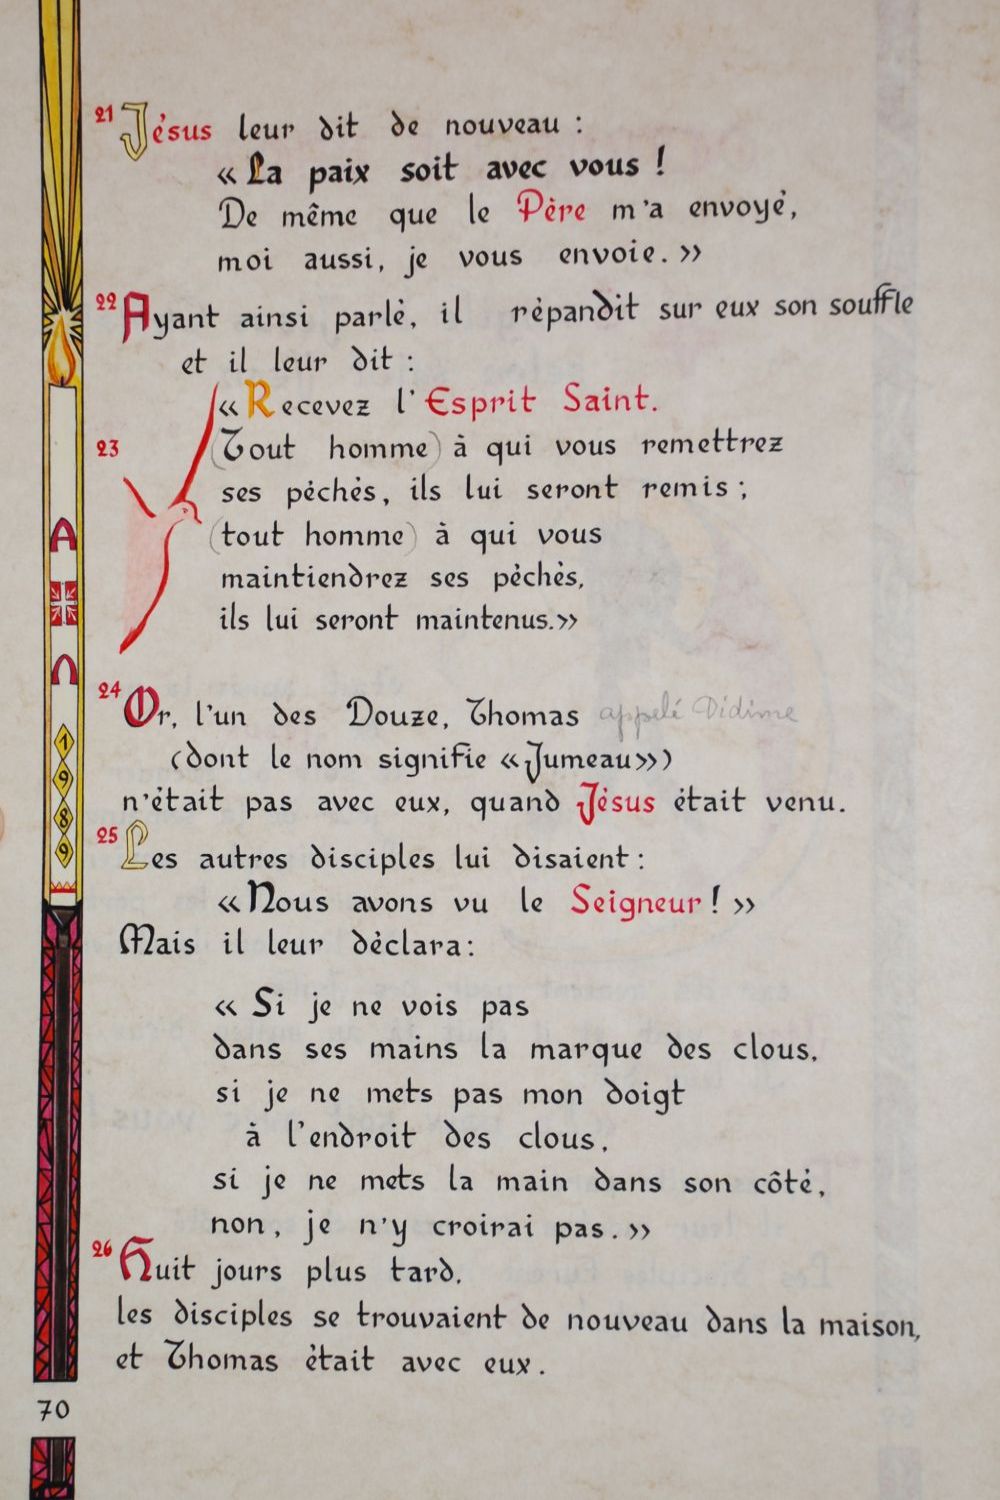 21 Jésus leur dit de nouveau :
« La paix soit avec vous !
De même que le Père m'a envoyé,
moi aussi, je vous envoie. »
22 Ayant ainsi parlé, il répandit sur eux son souffle
et il leur dit :
« Recevez l'Esprit Saint.
23 (Tout homme) à qui vous remettrez
ses péchés, ils lui seront remis ;
(tout homme) à qui vous
maintiendrez ses péchés,
ils lui seront maintenus. »
24 Or, l'un des Douze, Thomas appelé Didime
(dont le nom signifie « Jumeau »)
n'était pas avec eux, quand Jésus était venu.
25 Les autres disciples lui disaient :
« Nous avons vu le Seigneur ! »
Mais il leur déclara :
« Si je ne vois pas
dans ses mains la marque des clous,
si je ne mets pas mon doigt
à l'endroit des clous,
si je ne mets la main dans son côté,
non, je n'y croirai pas. »
26 Huit jours plus tard,
les disciples se trouvaient de nouveau dans la maison,
et Thomas était avec eux.
A
Ω
1
9
8
9
70